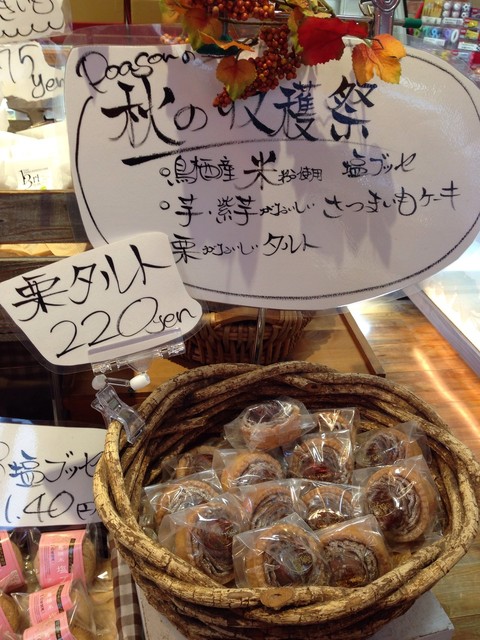 75
yen
Poasonの
秋の収穫祭
○鳥栖産 米粉使用 塩ブッセ
○芋・紫芋がおいしい さつまいもケーキ
栗がおいしい タルト
栗タルト
220yen
塩ブッセ
140円